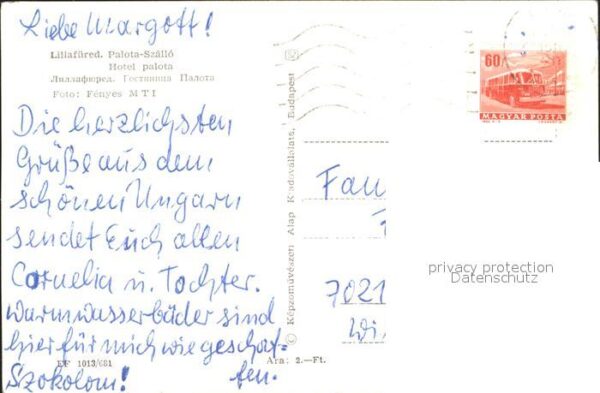 Liebe Margott!
Lillafüred. Palota-Szálló
Hotel palota
Лиллафюред. Гостиница Палота
Foto: Fényes MTI
Die herzlichsten
Grüße aus dem
schönen Ungarn
sendet Euch allen
Cornelia u. Tochter.
Warmwasserbäder sind
hier für mich wie geschaf-
fen.
Szokolom!
EF 1013/681
Ára: 2.—Ft.
© Képzőművészeti Alap Kiadóvállalata, Budapest
60
MAGYAR POSTA
Fam
7021
privacy protection
Datenschutz